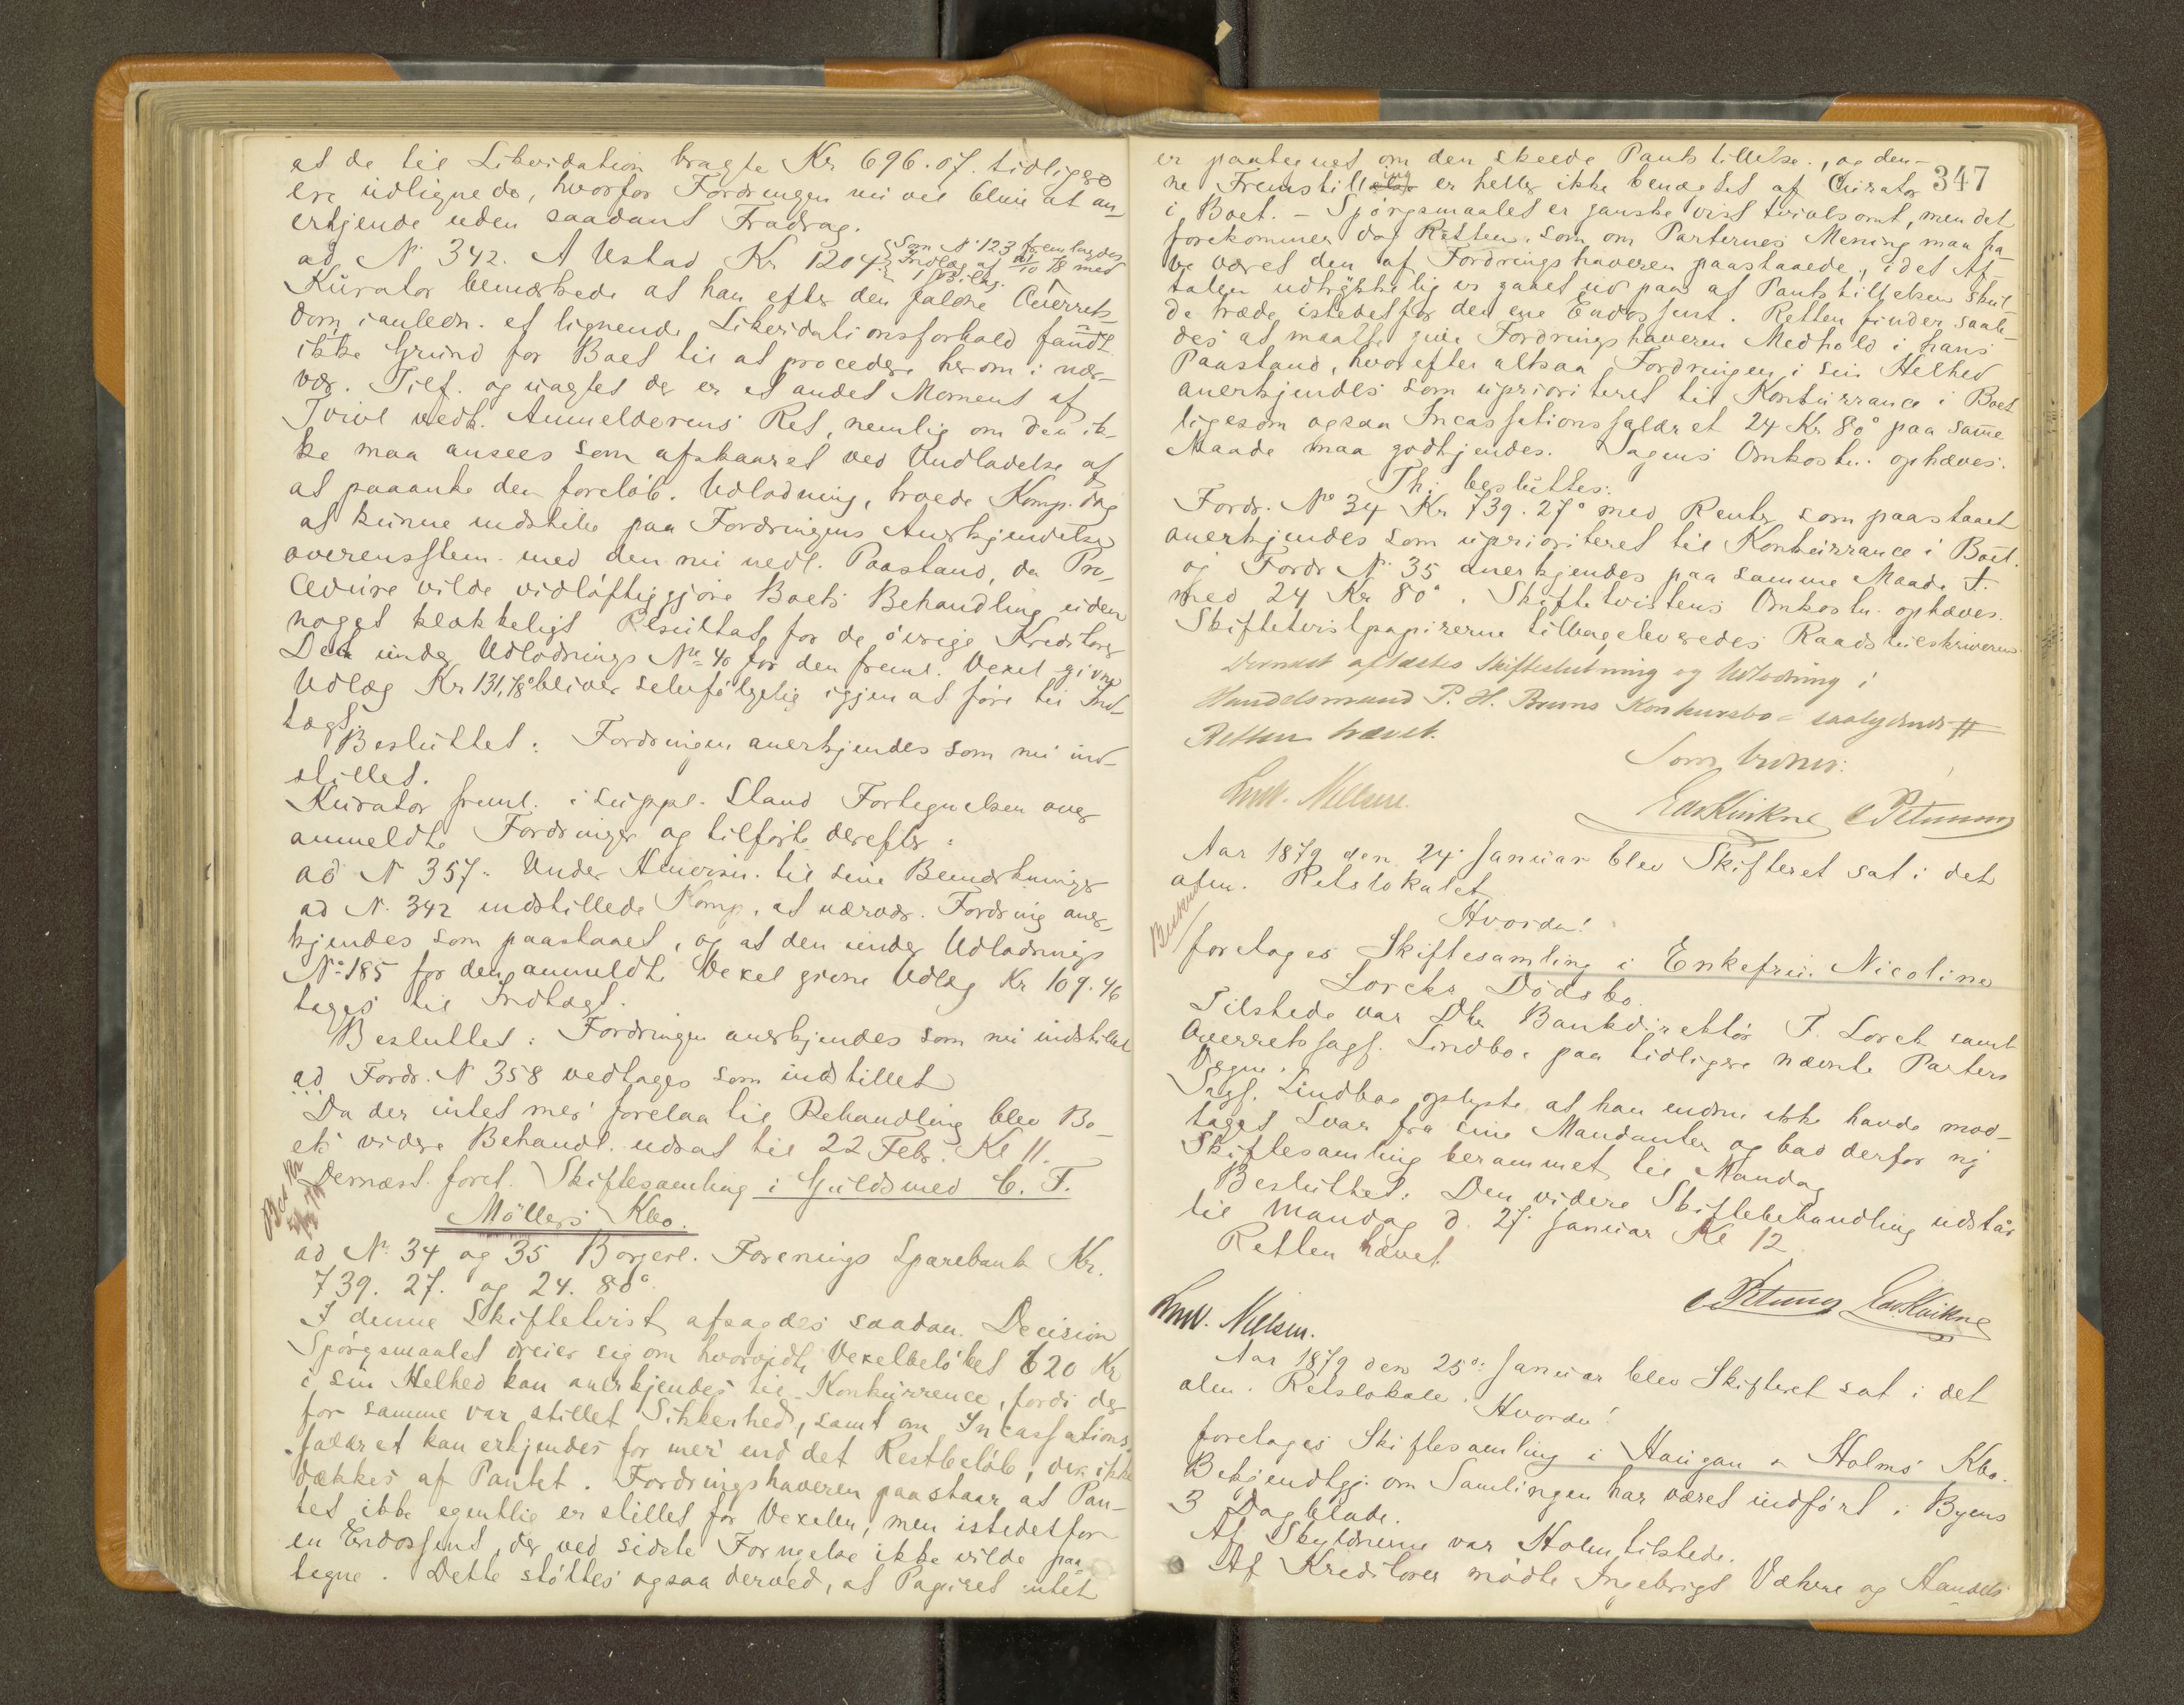 at de til Likvidation bragte Kr 696.07. tidligere
ere udlignede, hvorfor Fordringen nu vil blive at an-
erkjende uden saadant Fradrag.
ad No 342. A Ustad Kr 1204. {Som No 123 fremlagdes
Indlæg af 21/10 78 med
1 Bilag.
Kurator bemærkede at han efter den faldne Overrets
dom i anledn. et lignende Likvidationsforhold fandt
ikke Grund for Boet til at procedere herom i nær-
vær. Tilf. og uagtet der er et andet Moment af
Tvivl vedk. Anmelderens Ret, nemlig om den ik-
ke maa ansees som afskaaret ved Undladelse af
at paaanke den foreløb. Udlodning, troede Komp. dog
at kunne indstille paa Fordringens Anerkjendelse
overensstem. med den nu nedl. Paastand, da Pro-
cedure vilde vidløftiggjøre Boets Behandling uden
noget klækkeligt Resultat for de øvrige Kreditorer
Det under Udlodnings No 40 for den freml. Vexel givne
Udlæg Kr 131,78 bliver selvfølgelig igjen at føre til Ind-
tægt.
Besluttet: Fordringen anerkjendes som nu ind-
stillet.
Kurator freml. i suppl. Stand Fortegnelsen over
anmeldte Fordringer og tilførte derefter:
ad N 357. Under Henvisn. til sine Bemærkninger
ad N. 342 indstillede Komp. at nærvær. Fordring aner-
kjendes som paastaaet, og at den under Udlodnings
No 185 for den anmeldte Vexel givne Udlæg Kr 109.46
tages til Indtægt.
Besluttet: Fordringen anerkjendes som nu indstillet
ad Fordr. N 358 vedtages som indstillet
Da der intet mer forelaa til Behandling blev Bo-
ets videre Behandl. udsat til 22 Febr. Kl 11.
Dernæst foret. Skiftesamling i Guldsmed C. F.
Møllers Kbo.
ad No 34 og 35 Borgerl. Forenings Sparebank Kr.
739. 27. og 24. 80
I denne Skiftetvist afsagdes saadan Decision
Spørgsmaalet dreier sig om hvorvidt Vexelbeløbet 620 Kr
i sin Helhed kan anerkjendes til Konkurrence, fordi der
for samme var stillet Sikkerhed, samt om Incassations-
salæret kan erkjendes for mer end det Restbeløb, der ikke
dækkes af Pantet. Fordringshaveren paastaar at Pan-
tet ikke egentlig er stillet for Vexelen, men istedetfor
en Endossent, der ved sidste Fornyelse ikke vilde paa-
tegne. Dette støttes ogsaa derved, at Papiret intet
347
er paategnet om den skeede Pantstillelse, og den-
ne Fremstilling er heller ikke benægtet af Curator
i Boet. - Spørgsmaalet er ganske vist tvivlsomt, men det
forekommer dog Retten, som om Parternes Mening maa ha-
ve været den af Fordringshaveren paastaaede, idet Af-
talen udtrykkelig er gaaet ud paa at Pantstillelsen skul-
de træde istedetfor den ene Endossent. Retten finder saale-
des at maatte give Fordringshaveren Medhold i hans
Paastand, hvorefter altsaa Fordringen i sin Helhed
anerkjendes som uprioriteret til Konkurrance i Boet
ligesom ogsaa Incassationssalæret 24 Kr 80 ø paa samme
Maade maa godkjendes. Sagens Omkostn. ophæves.
Thi besluttes:
Fordr. No 34 Kr 739.27 ø med Renter som paastaaet
anerkjendes som uprioriteret til Konkurrance i Boet.
og Fordr No 35 anerkjendes paa samme Maade
med 24 Kr 80 ø. Skiftetvistens Omkostn. ophæves.
Skiftetvistpapirerne tilbageleveredes Raadstueskriveren
Dernæst aflæstes Skifteslutning og Udlodning i
Handelsmand P. H. Bruns Konkursbo - saalydende #
Retten hævet.
Som Vidner:
Ludv. Nielsen.
Edv Kvikne
Aar 1879 den 24. Januar blev Skifteret sat i det
alm. Retslokalet
Hvorda!
foretages Skiftesamling i Enkefru Nicoline
Lorcks Dødsbo.
Tilstede var Dhr Bankdirektør F. Lorck samt
Overretssagf. Lindboe paa tidligere nævnte Parters
Vegne.
Sagf. Lindboe oplyste at han endnu ikke havde mod-
taget Svar fra sine Mandanter og bad derfor ny
Skiftesamling berammet til Mandag
Besluttet: Den videre Skiftebehandling udstaar
til Mandag d. 27. Januar Kl 12
Retten hævet
Edv Kvikne
Ludv. Nielsen.
Aar 1879 den 25de Januar blev Skifteret sat i det
alm. Retslokale. Hvorda!
foretages Skiftesamling i Haugan & Holms Kbo.
Bekjendtgj. om Samlingen har været indført i Byens
3 Dagblade.
Af Skyldnerne var Holm tilstede.
Af Kreditorer mødte Ingebrigt Vækre og Handels